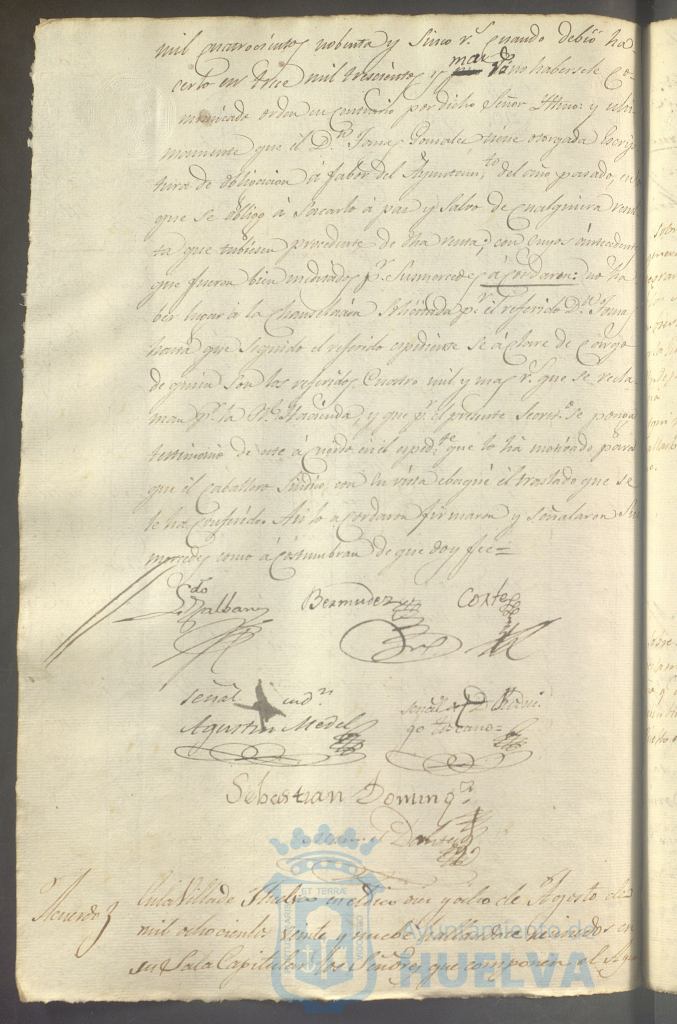 mil quatrocientos nobenta y sinco r.s quando debio ha-
cerlo en trece mil trescientos y mar no haberse le co-
municado orden en contrario por dicho Señor Yttno: y ulti-
mamente que el D.n Tomas Gonzalez tiene otorgada Escrip-
tura de obligacion á fabor del Ayuntami.to del año pasado, en
que se obligó á Sacarlo á paz y salvo de cualquiera
ta que tubiesen procedente de dha renta; con cuyos antecedentes
que fueron bien meditados p.r Sus mercedes acordaron: no ha
ber lugar á la Chanselacion solicitada p.r el referido D.n Tomas
hasta que seguido el referido espediente se áclare de cargo
de quien son los referidos Cuatro mil y mas r.s que se recla
man p.r la R.l Hacienda, y que p.r el presente Secret.o se ponga
testimonio de este ácuerdo en el esped.te que lo há motivado para
que el caballero Sindico, con su vista ebaqúe el traslado que se
le ha conferido. Asi lo acordaron firmaron y señalaron Sus
mercedes como ácostumbran de que doy fee=
Bermudez Cortes
señal
Agustin Medel
Sebastian Doming.z
Acuerdo
En la Villa de Huelva en dies y ocho de Agosto de
mil ochocientos veinte y nuebe hallandose reunidos en
su Sala Capitular los Señores que componen el Ayun
Ayuntamiento de
HUELVA